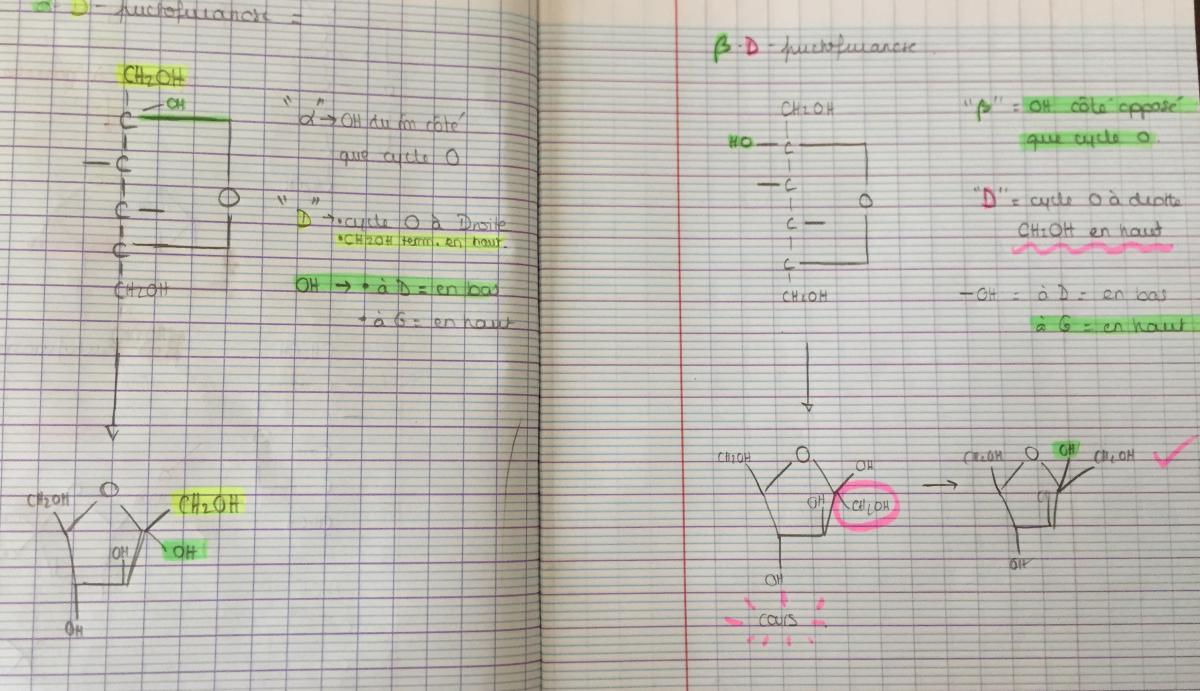 α-D-fructofuranose =
CH2OH
OH
C
C
C
C
O
CH2OH
"α" → OH du m̂ côté
que cycle O
"D" → • cycle O à Droite
• CH2OH term. en haut.
OH → • à D = en bas
• à G = en haut
CH2OH
O
CH2OH
OH
OH
OH
β-D-fructofuranose
CH2OH
HO
C
C
C
C
O
CH2OH
"β" = OH côté opposé
que cycle O.
"D" = cycle O à droite
CH2OH en haut
-OH = à D = en bas
à G = en haut
CH2OH
O
OH
OH
CH2OH
OH
cours
CH2OH
O
OH
CH2OH
OH